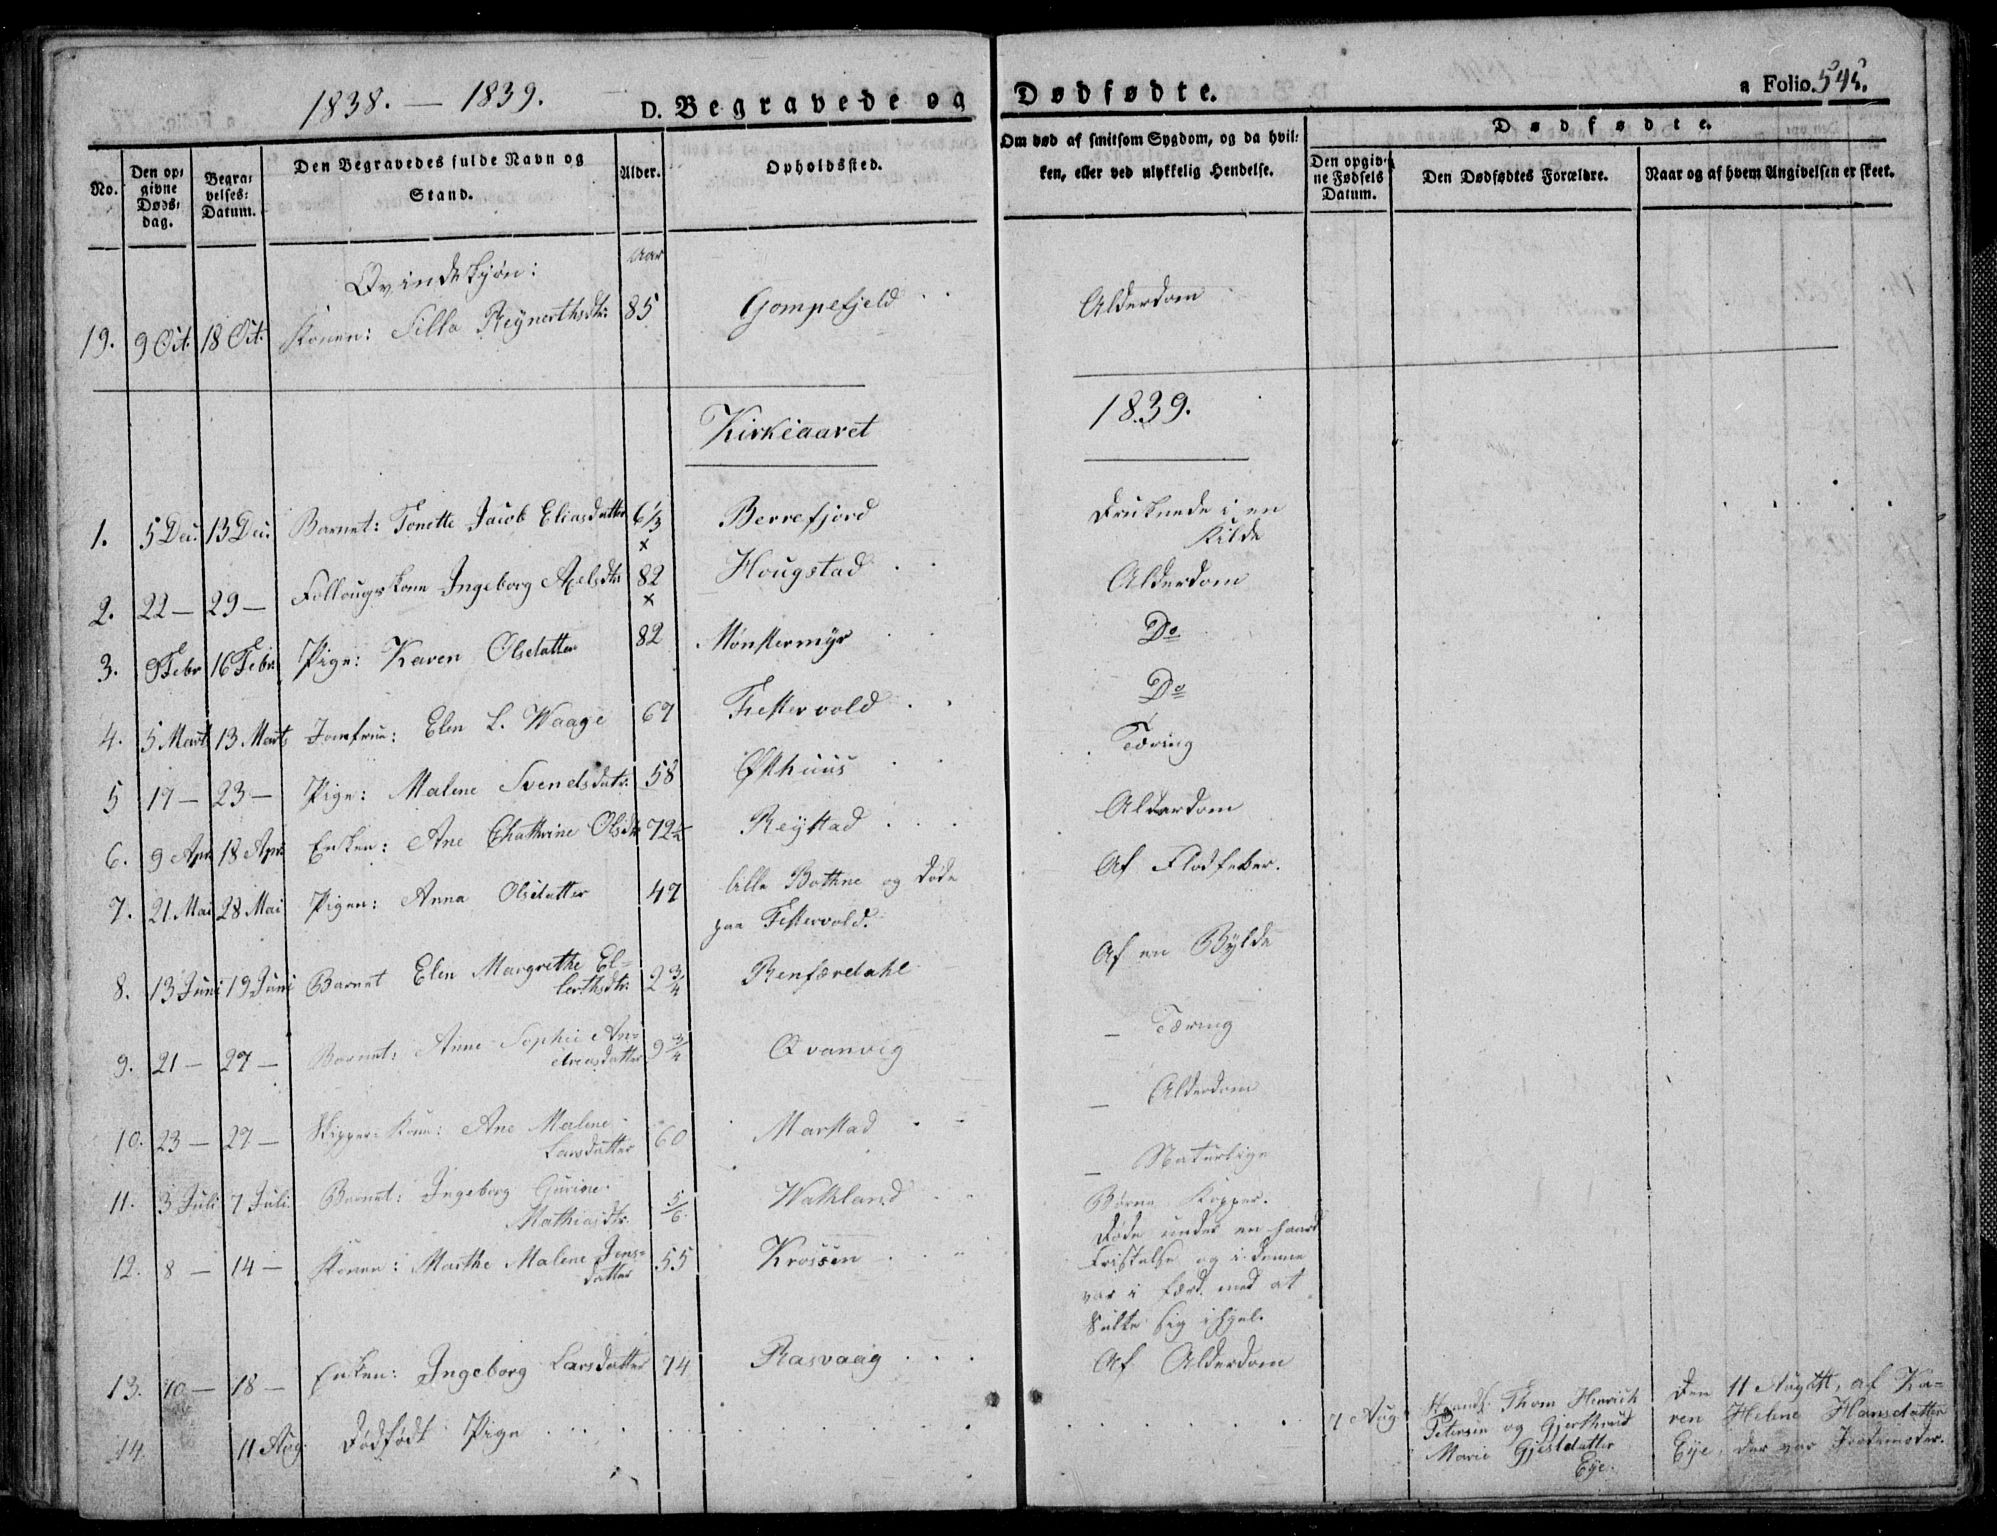 1838. — 1839.
D. Begravede og Dødfødte.
a Folio. 545.
No.
Den opgivne Døds-dag.
Begravelses-Datum.
Den Begravedes fulde Navn og Stand.
Alder.
Opholdssted.
Om død af smitsom Sygdom, og da hvilken, eller ved ulykkelig Hendelse.
Dødfødte.
Den opgivne Fødsels Datum.
Den Dødfødtes Forældre.
Naar og af hvem Angivelsen er skeet.
Qvindekjøn:
Aar
19. 9 Oct. 18 Oct. Konen: Silla Reynerthsdtr: 85 Gompefjeld Alderdom
Kirkeaaret 1839.
1. 5 Dec. 13 Dec. Barnet: Tonette Jacob Eliasdatter 6 1/3 Berrefjord Druknede i en
Kilde
2. 22 — 29 — Ingeborg Axelsdtr 82 Hougstad Alderdom
3. 9 Febr 16 Febr. Pige: Karen Olsdatter 82 Mønstermyr Do
4. 5 Marts 13 Marts Jomfrue: Elen L. Waage 67 Festervold Do
5 17 — 23 — Pige: Malene Svendsdatr: 58 Østhuus Tæring
6. 9 Apr. 18 Apr. Enken: Ane Chathrine Olsdtr 72 1/2 Reystad Alderdom
7. 21 Mai 28 Mai Pigen: Anna Olsdatter 47 lille Bothne og døde Af Flodfeber.
paa Festervold.
8. 13 Juni 19 Juni Barnet Elen Margrethe El-
lertsdtr: 2 3/4 Renfærdahl Af en Bylde
9. 21 — 27 — Barnet: Anne Sophie An-
dreasdatter 9 3/4 Qvanvig — Tæring
10. 23 — 27 — Skipper-Kone: Ane Malene
Larsdatter 60 Marstad — Alderdom
11. 3 Juli 7 Juli. Barnet: Ingeborg Gurine
Mathiasdtr. 5/6 Wathland — Naturlige
Børne Kopper.
12. 8 — 14 — Konen: Marthe Malene Jens-
datter 55 Krossen Døde under en haard
Fristelse og i denne
var i færd med at
Sulte sig ihjel.
13. 10 — 18 — Enken: Ingeborg Larsdatter 74 Rasvaag Af Alderdom
14. 11 Aug. Dødfødt Pige
7 Aug.
Thom Henrich
Petersen og Gjerthrud
Marie Gjestdatter
Eye.
Den 11 August, af Ka-
ren Helene Hansdatter
Eye, der var Jordemoder.